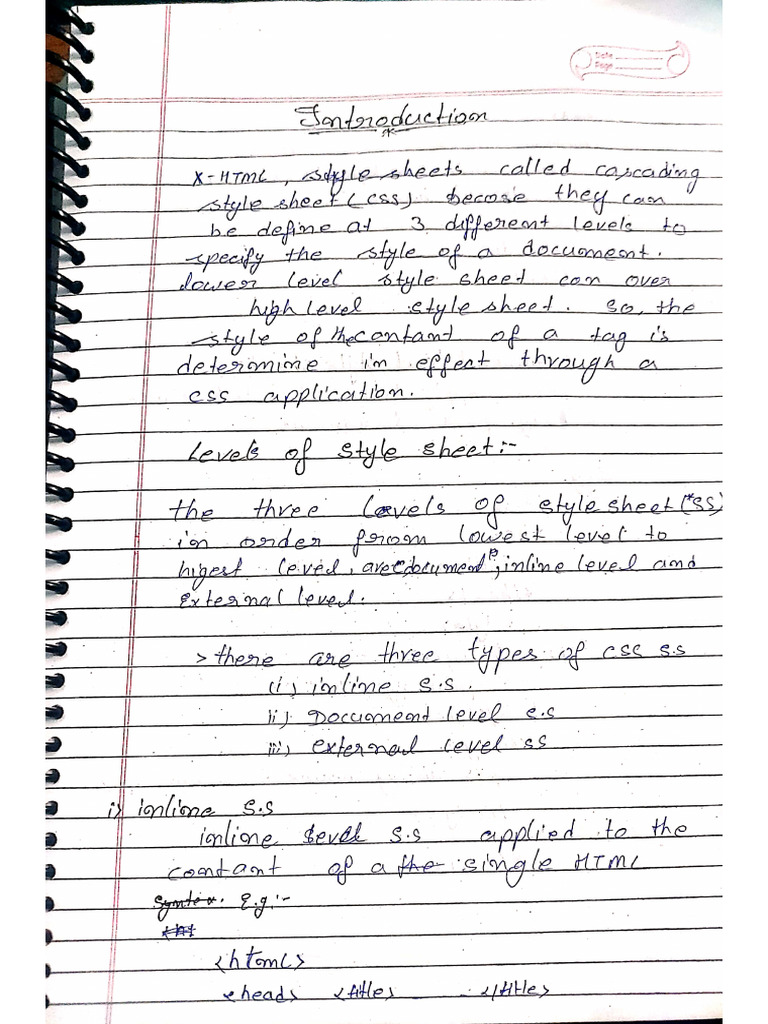 Date
Page
Introduction
X-HTML, style sheets called cascading
style sheet (css) becose they can
be define at 3 different levels to
specify the style of a document.
lower level style sheet can over
high level style sheet. So, the
style of the contant of a tag is
determine in effect through a
css application.
Levels of style sheet:-
the three levels of style sheet (*SS)
in order from lowest level to
higest level, are document, inline level and
External level.
> there are three types of css s.s
(i) inline s.s.
ii) Document level e.s
iii) external level ss
i) inline s.s
inline level s.s applied to the
contant of a the single HTML
Syntex. E.g:-
<html>
<head> <title> </title>